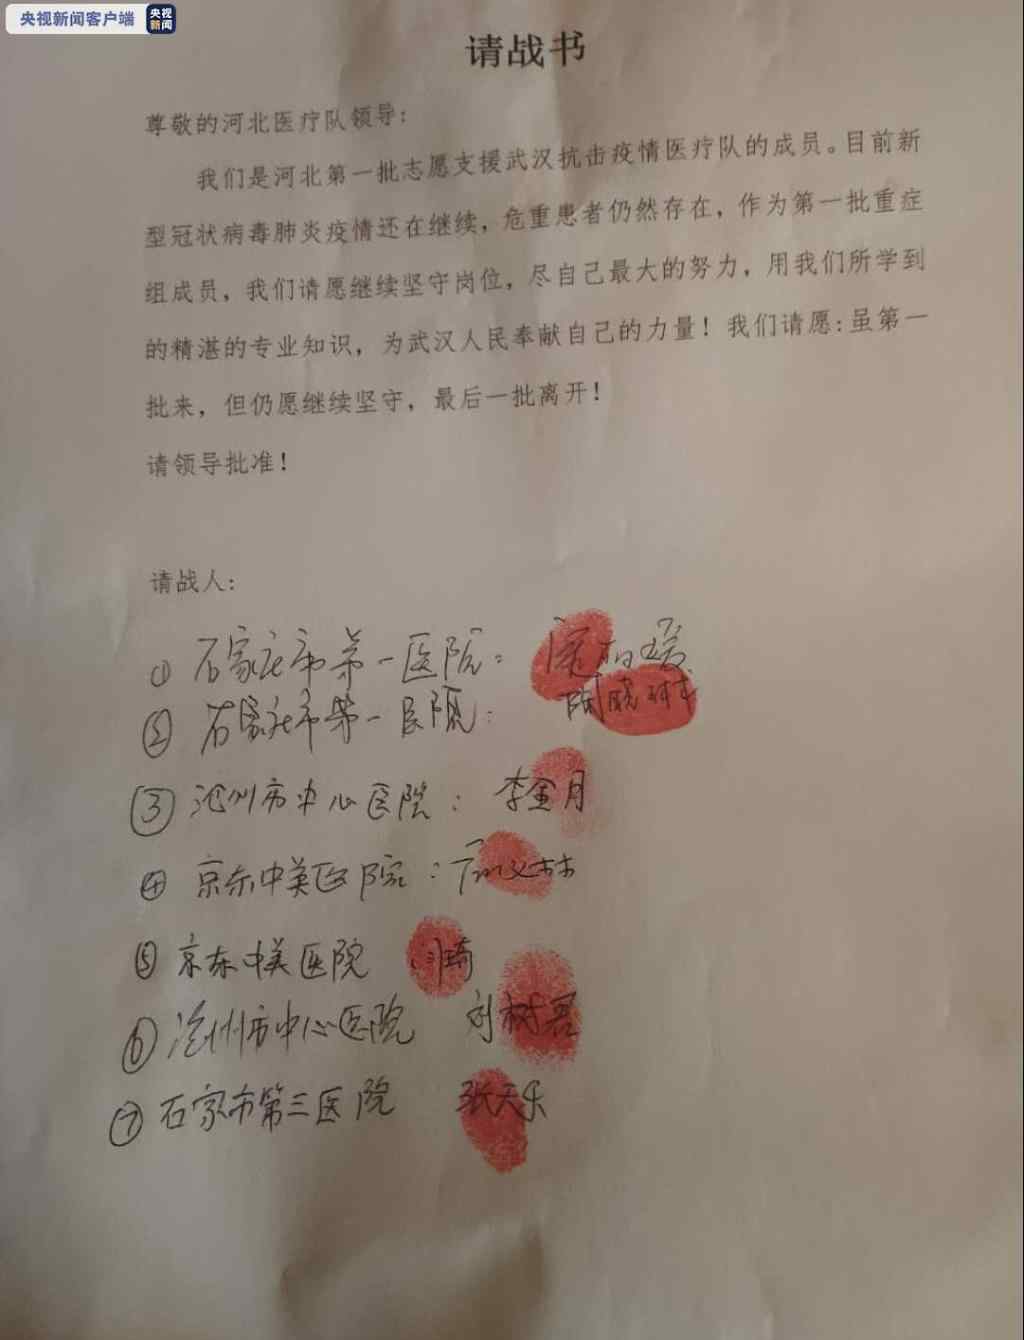 央视新闻客户端 央视新闻
请战书
尊敬的河北医疗队领导：
我们是河北第一批志愿支援武汉抗击疫情医疗队的成员。目前新
型冠状病毒肺炎疫情还在继续，危重患者仍然存在，作为第一批重症
组成员，我们请愿继续坚守岗位，尽自己最大的努力，用我们所学到
的精湛的专业知识，为武汉人民奉献自己的力量！我们请愿：虽第一
批来，但仍愿继续坚守，最后一批离开！
请领导批准！
请战人：
① 石家庄市第一医院：
② 石家庄市第一医院： 陶
③ 沧州市中心医院： 李金月
④ 京东中美医院：
⑤ 京东中美医院 闫琦
⑥ 沧州市中心医院 刘树君
⑦ 石家市第三医院 张天乐